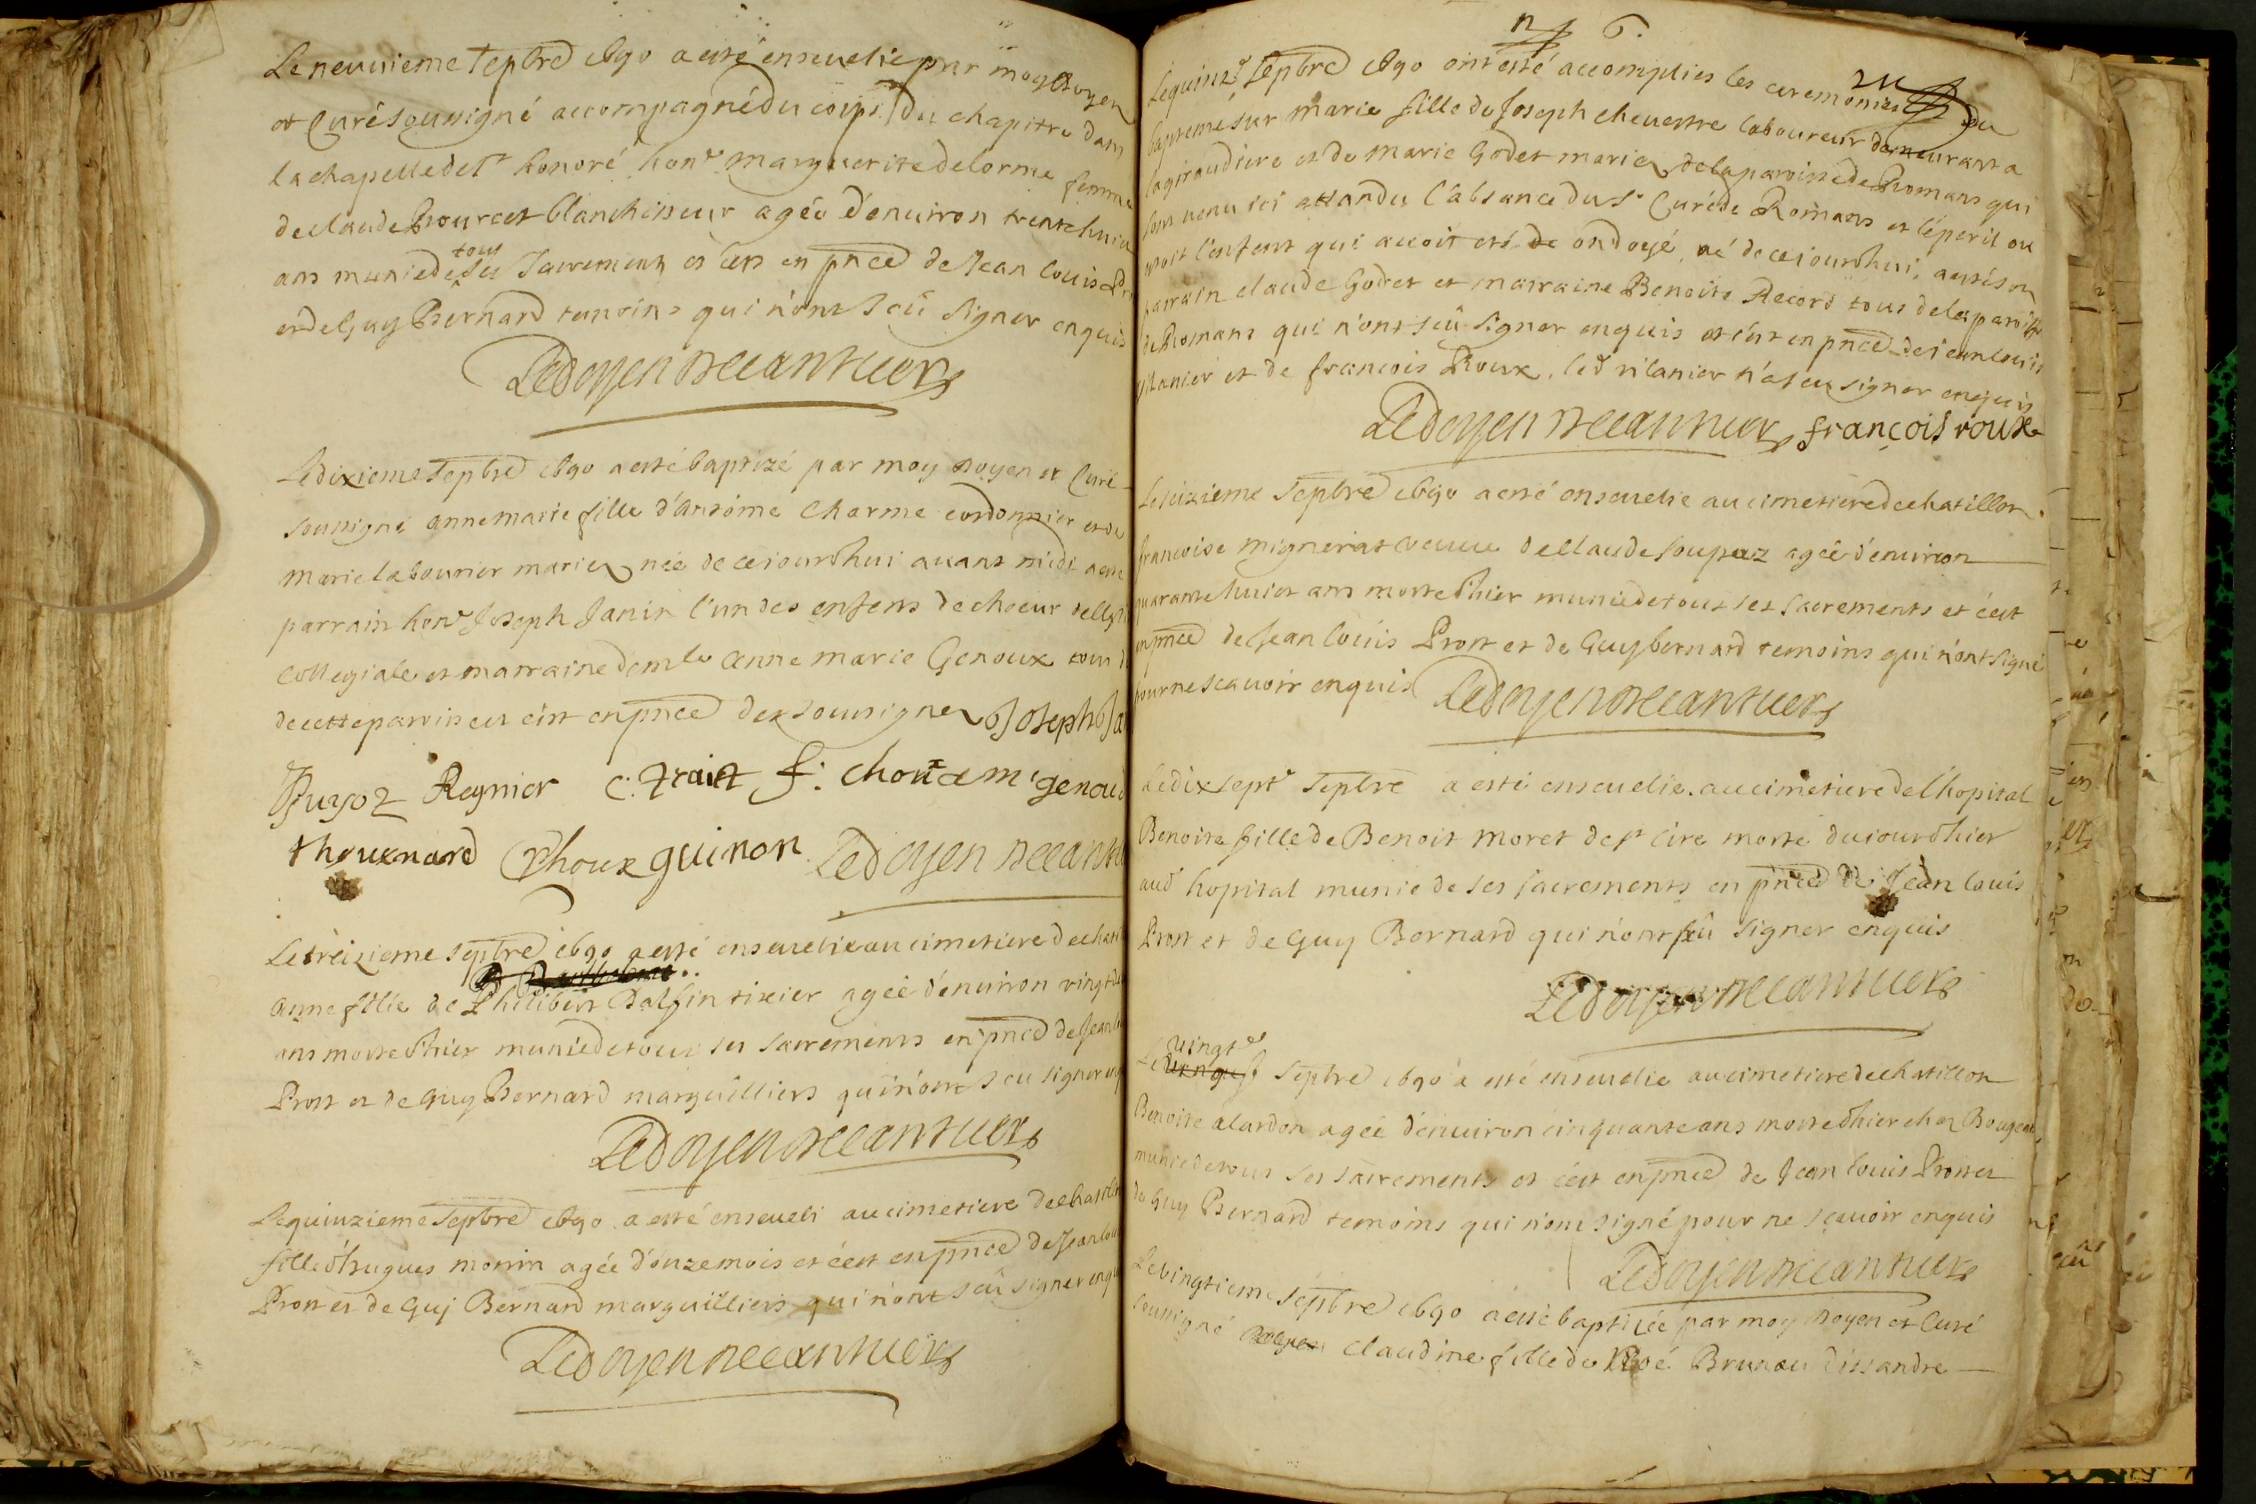 Le neuvieme Septbre 1690 a esté ensevelie par moy doyen
et Curé soussigné accompagné du corps du chapitre dans
la chapelle de St honoré hone marguerite delorme femme
de claude Bourcet blanchisseur agée d'environ trentehuict
ans munie de tous ses Sacrements et c'est en pnce de Jean louis
et de Guy Bernard temoins qui n'ont sceû signer enquis
Le doyen
Le dixieme Septbre 1690 a esté baptizé par moy doyen et Curé
soussigné anne marie fille d'Antoine Charme cordonnier et de
marie labourier mariez née de cejourdhui avant midi a esté
parrain hone Joseph Janin l'un des enfens de choeur de
Collegiale et marraine demlle anne marie Genoux tous
de cette paroisse et c'est en pnce des soussignez Joseph
Reynier C. trait f. m genoud
thouenard guinon Le doyen
Le treizieme septbre 1690 a esté ensevelie au cimetiere de
anne fille de Philibert Dalfin tixier agée d'environ vingt
ans morte d'hier munie de tous ses sacrements en pnce de Jean
Prost et de Guy Bernard marguilliers qui n'ont sceu signer
Le doyen
Le quinzieme Septbre 1690 a esté enseveli au cimetiere de
fille d'hugues monin agée d'onze mois et c'est en pnce de Jean
Prost et de Guy Bernard marguilliers qui n'ont sceu signer
Le doyen
6.
Le quinze Septbre 1690 ont esté accomplies les ceremonies du
bapteme sur marie fille de Joseph chevestre laboureur demeurant a
la giraudiere et de marie Godet mariez de la paroisse de Romans qui
sont venu ici attandu l'absance du Sr Curé de Romans et le peril ou
l'enfent qui avoit eté ondoyé, né de cejourdhui, a
parrain claude Godet et marraine Benoite Record tous de la paroisse
de Romans qui n'ont sceû signer enquis et c'est en pnce de jean louis
vilanier et de francois Roux. led vilanier n'a sceu signer enquis
Le doyen françois roux
Le seizieme Septbre 1690 a esté ensevelie au cimetiere de chatillon
francoise mignerat veuve de Claude soupaz agée d'environ
quarantehuict ans morte d'hier munie de tous ses sacrements et c'est
en pnce de Jean louis Prost et de Guy bernard temoins qui n'ont signé
pour ne scavoir enquis Le doyen
Le dix sept Septbre a esté ensevelie au cimetiere de l'hopital
Benoite fille de Benoit moret de st Cire morte du jourd'hier
aud hopital munie de ses sacrements en pnce de Jean louis
Prost et de Guy Bernard qui n'ont sceû signer enquis
Le doyen
Le vingt Septbre 1690 a esté ensevelie au cimetiere de chatillon
Benoite alardon agée d'environ cinquante ans morte d'hier chez
munie de tous ses sacrements et c'est en pnce de Jean louis Prost et
de Guy Bernard temoins qui n'ont signé pour ne scavoir enquis
Le doyen
Le vingtieme septbre 1690 a esté baptizée par moy doyen et Curé
soussigné claudine fille de Noé Brunau